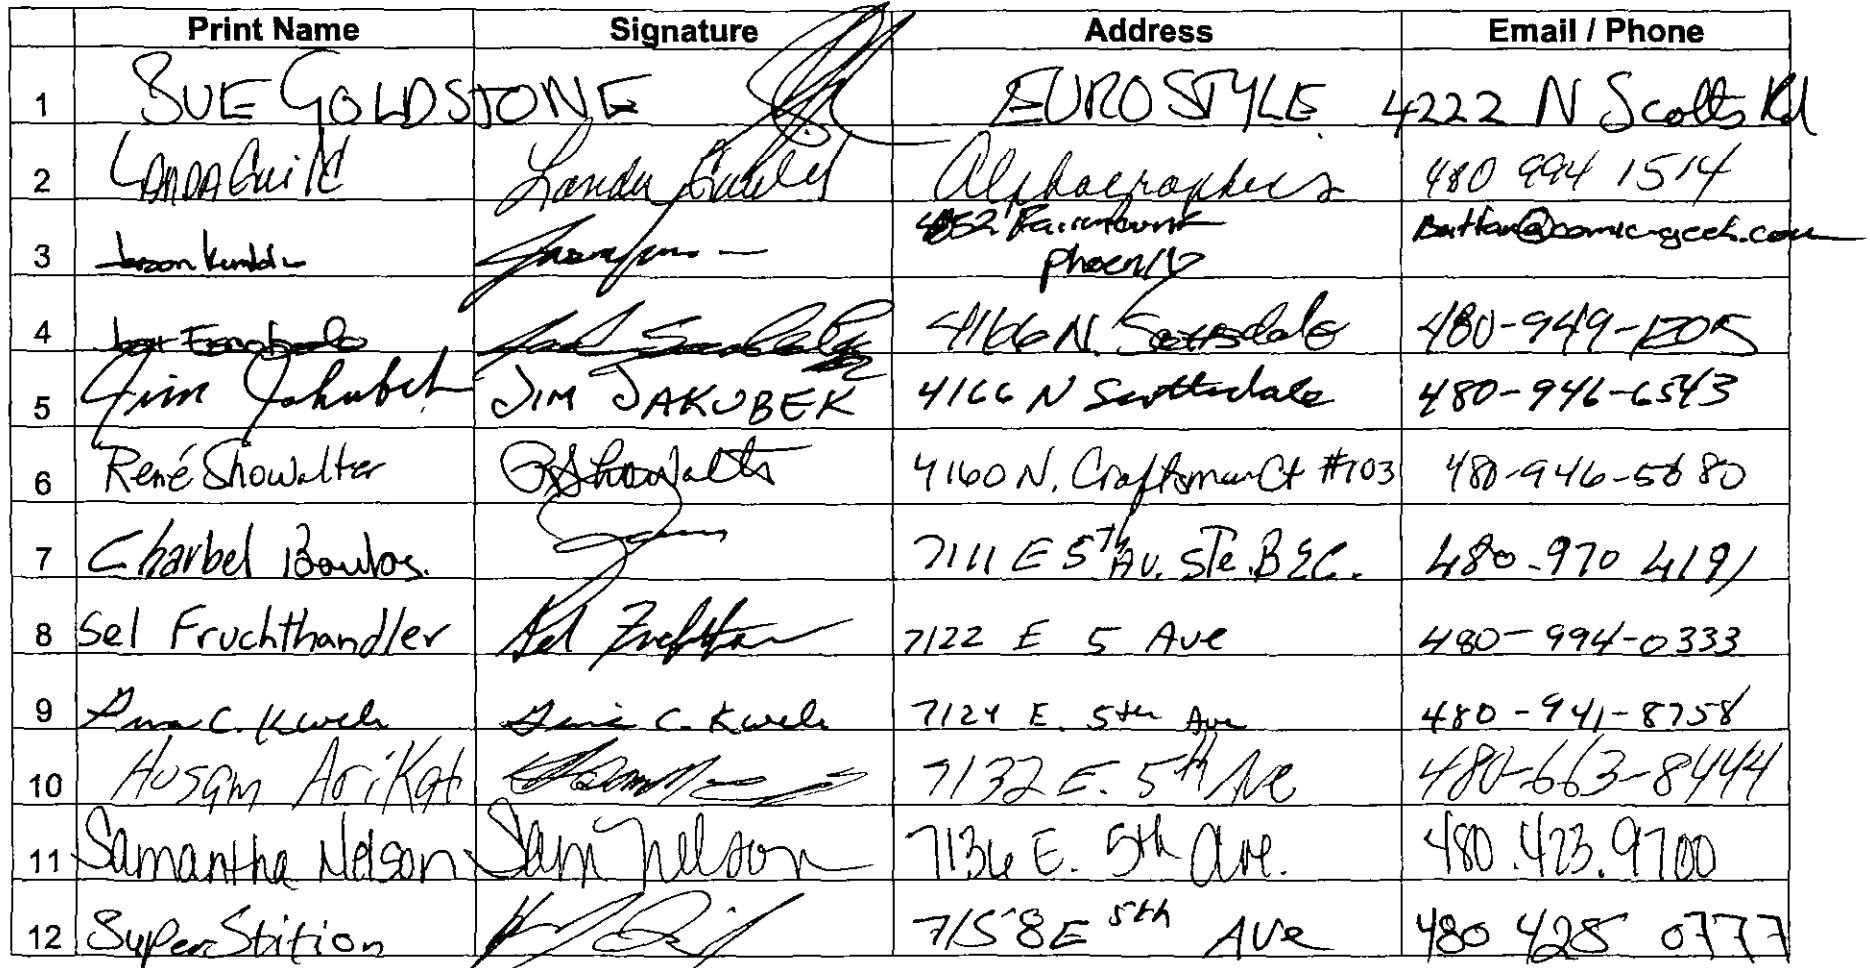 Print Name Signature Address Email / Phone
1 SUE GOLDSTONE EUROSTYLE 4222 N Scotts Rd
2 LANDA Guild Landa Alphagraphics 480 994 1514
3 Fairmount
Phoenix
4 4166 N. Scottsdale 480-949-1205
5 Jim Jakubek JIM JAKUBEK 4166 N Scottsdale 480-946-6543
6 René Showalter RShowalter 4160 N. Craftsman Ct #103 480-946-5680
7 Charbel Boulos. 7111 E 5th AV. STe. B&C. 480-970 4191
8 Sel Fruchthandler Sel 7122 E 5 Ave 480-994-0333
9 C. C. 7124 E. 5th Ave 480-941-8758
10 Husam AriKat 7132 E. 5th Ave 480-663-8444
11 Samantha Nelson Sam Nelson 7136 E. 5th Ave. 480.423.9700
12 SuperStition 7158 E 5th AVe 480 428 0777